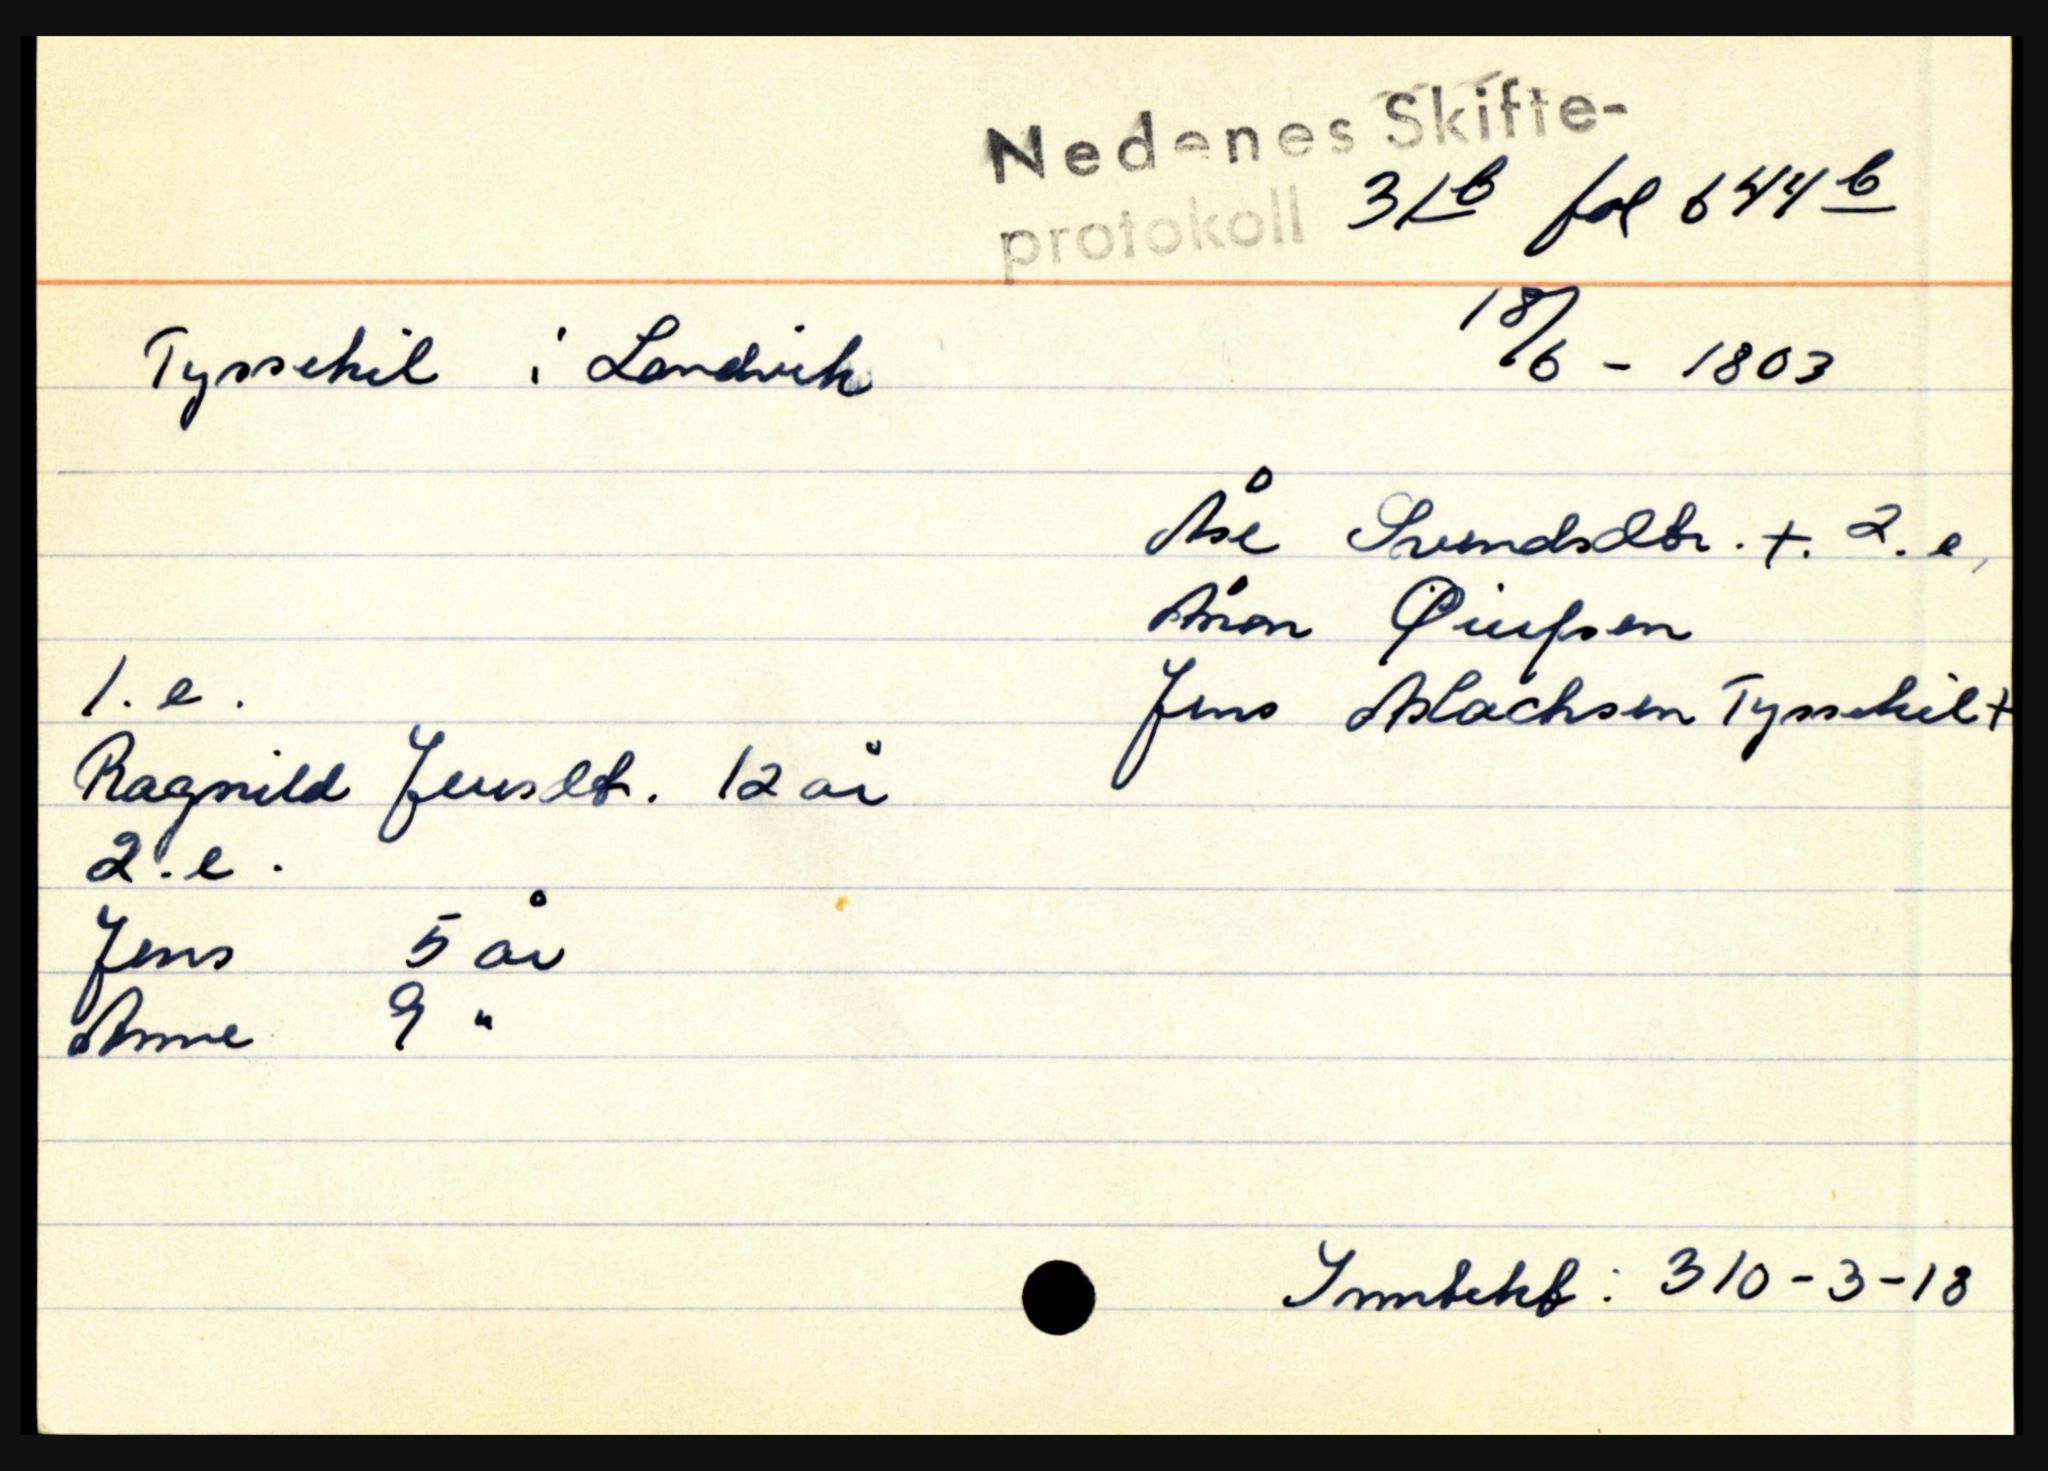 Nedenes Skifte-
protokoll 31b fol 644b
Tyssekil i Landvik 18/6 - 1803
Åse Svendsdtr. +. 2. e,
Ånon
1. e.
Jens Aslachsen Tyssekil +
Ragnild Jensdtr. 12 år
2. e.
Jens 5 år
Anne 9 "
Inntekt: 310-3-18